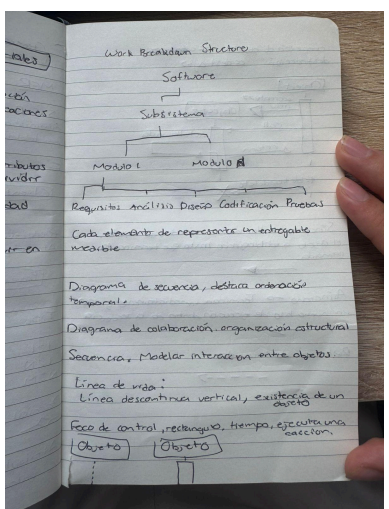 Work Breakdown Structure
Software
Subsistema
Modulo 1 Modulo N
Requisitos Análisis Diseño Codificación Pruebas
Cada elemento de representar un entregable
medible
Diagrama de secuencia, destaca ordenación
temporal.
Diagrama de colaboración. organización estructural
Secuencia. Modelar interaccion entre objetos
Línea de vida:
Línea descontinua vertical, existencia de un
objeto
Foco de control, rectangulo, tiempo, ejecuta una
accion.
Objeto Objeto
ción
aciones
ributos
dad
en